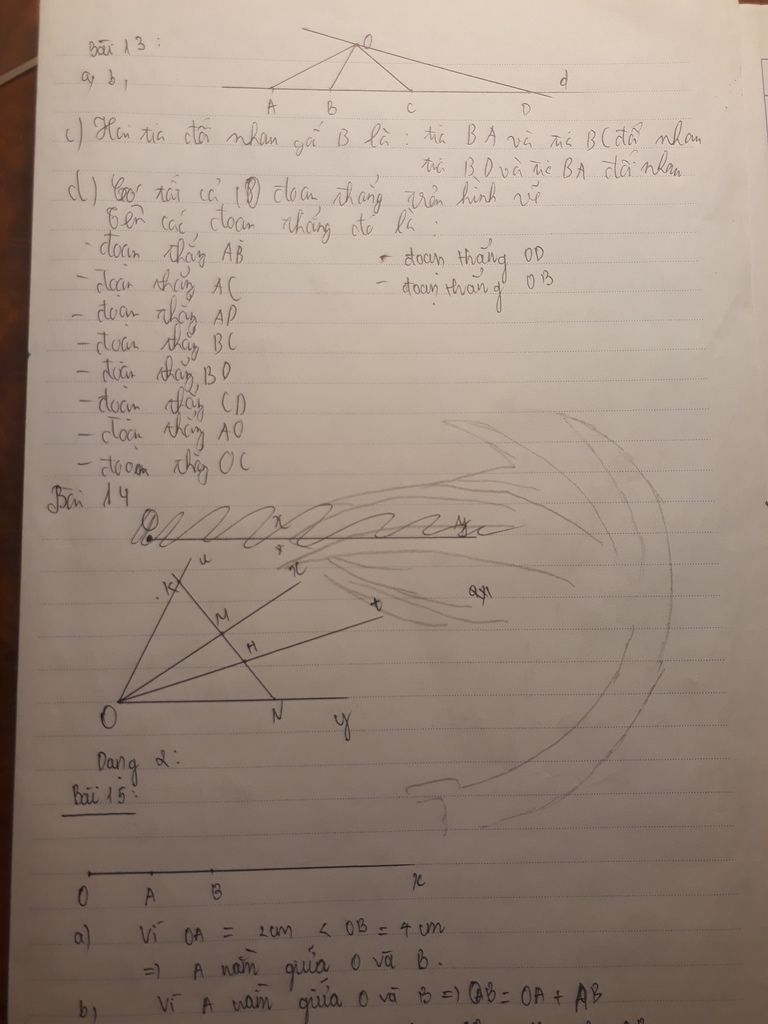 Bài 13:
a, b,
O
d
A B C D
c) Hai tia đối nhau gố B là: tia BA và tia BC đối nhau
tia BD và tia BA đối nhau
d) Có tất cả 10 đoạn thẳng trên hình vẽ
Tên các đoạn thẳng đó là:
- đoạn thẳng AB
- đoạn thẳng AC
- đoạn thẳng AD
- đoạn thẳng BC
- đoạn thẳng BD
- đoạn thẳng CD
- đoạn thẳng AO
- đoạn thẳng OC
- đoạn thẳng OD
- đoạn thẳng OB
Bài 14
O x
u
K x
M t
H
O N y
Dạng 2:
Bài 15:
O A B x
a) Vì OA = 2cm < OB = 4 cm
=> A nằm giữa O và B.
b, Vì A nằm giữa O và B => OB = OA + AB